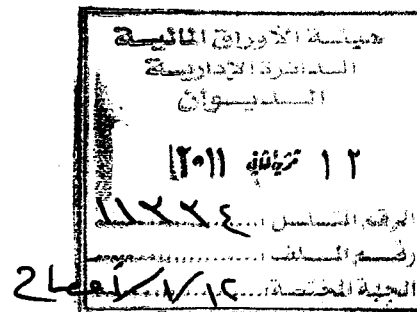 هيئة الأوراق المالية
الدائرة الإدارية
الديوان
١٢ تشرين ثاني ٢٠١١
الرقم المتسلسل
رقم الملف
الجهة المختصة